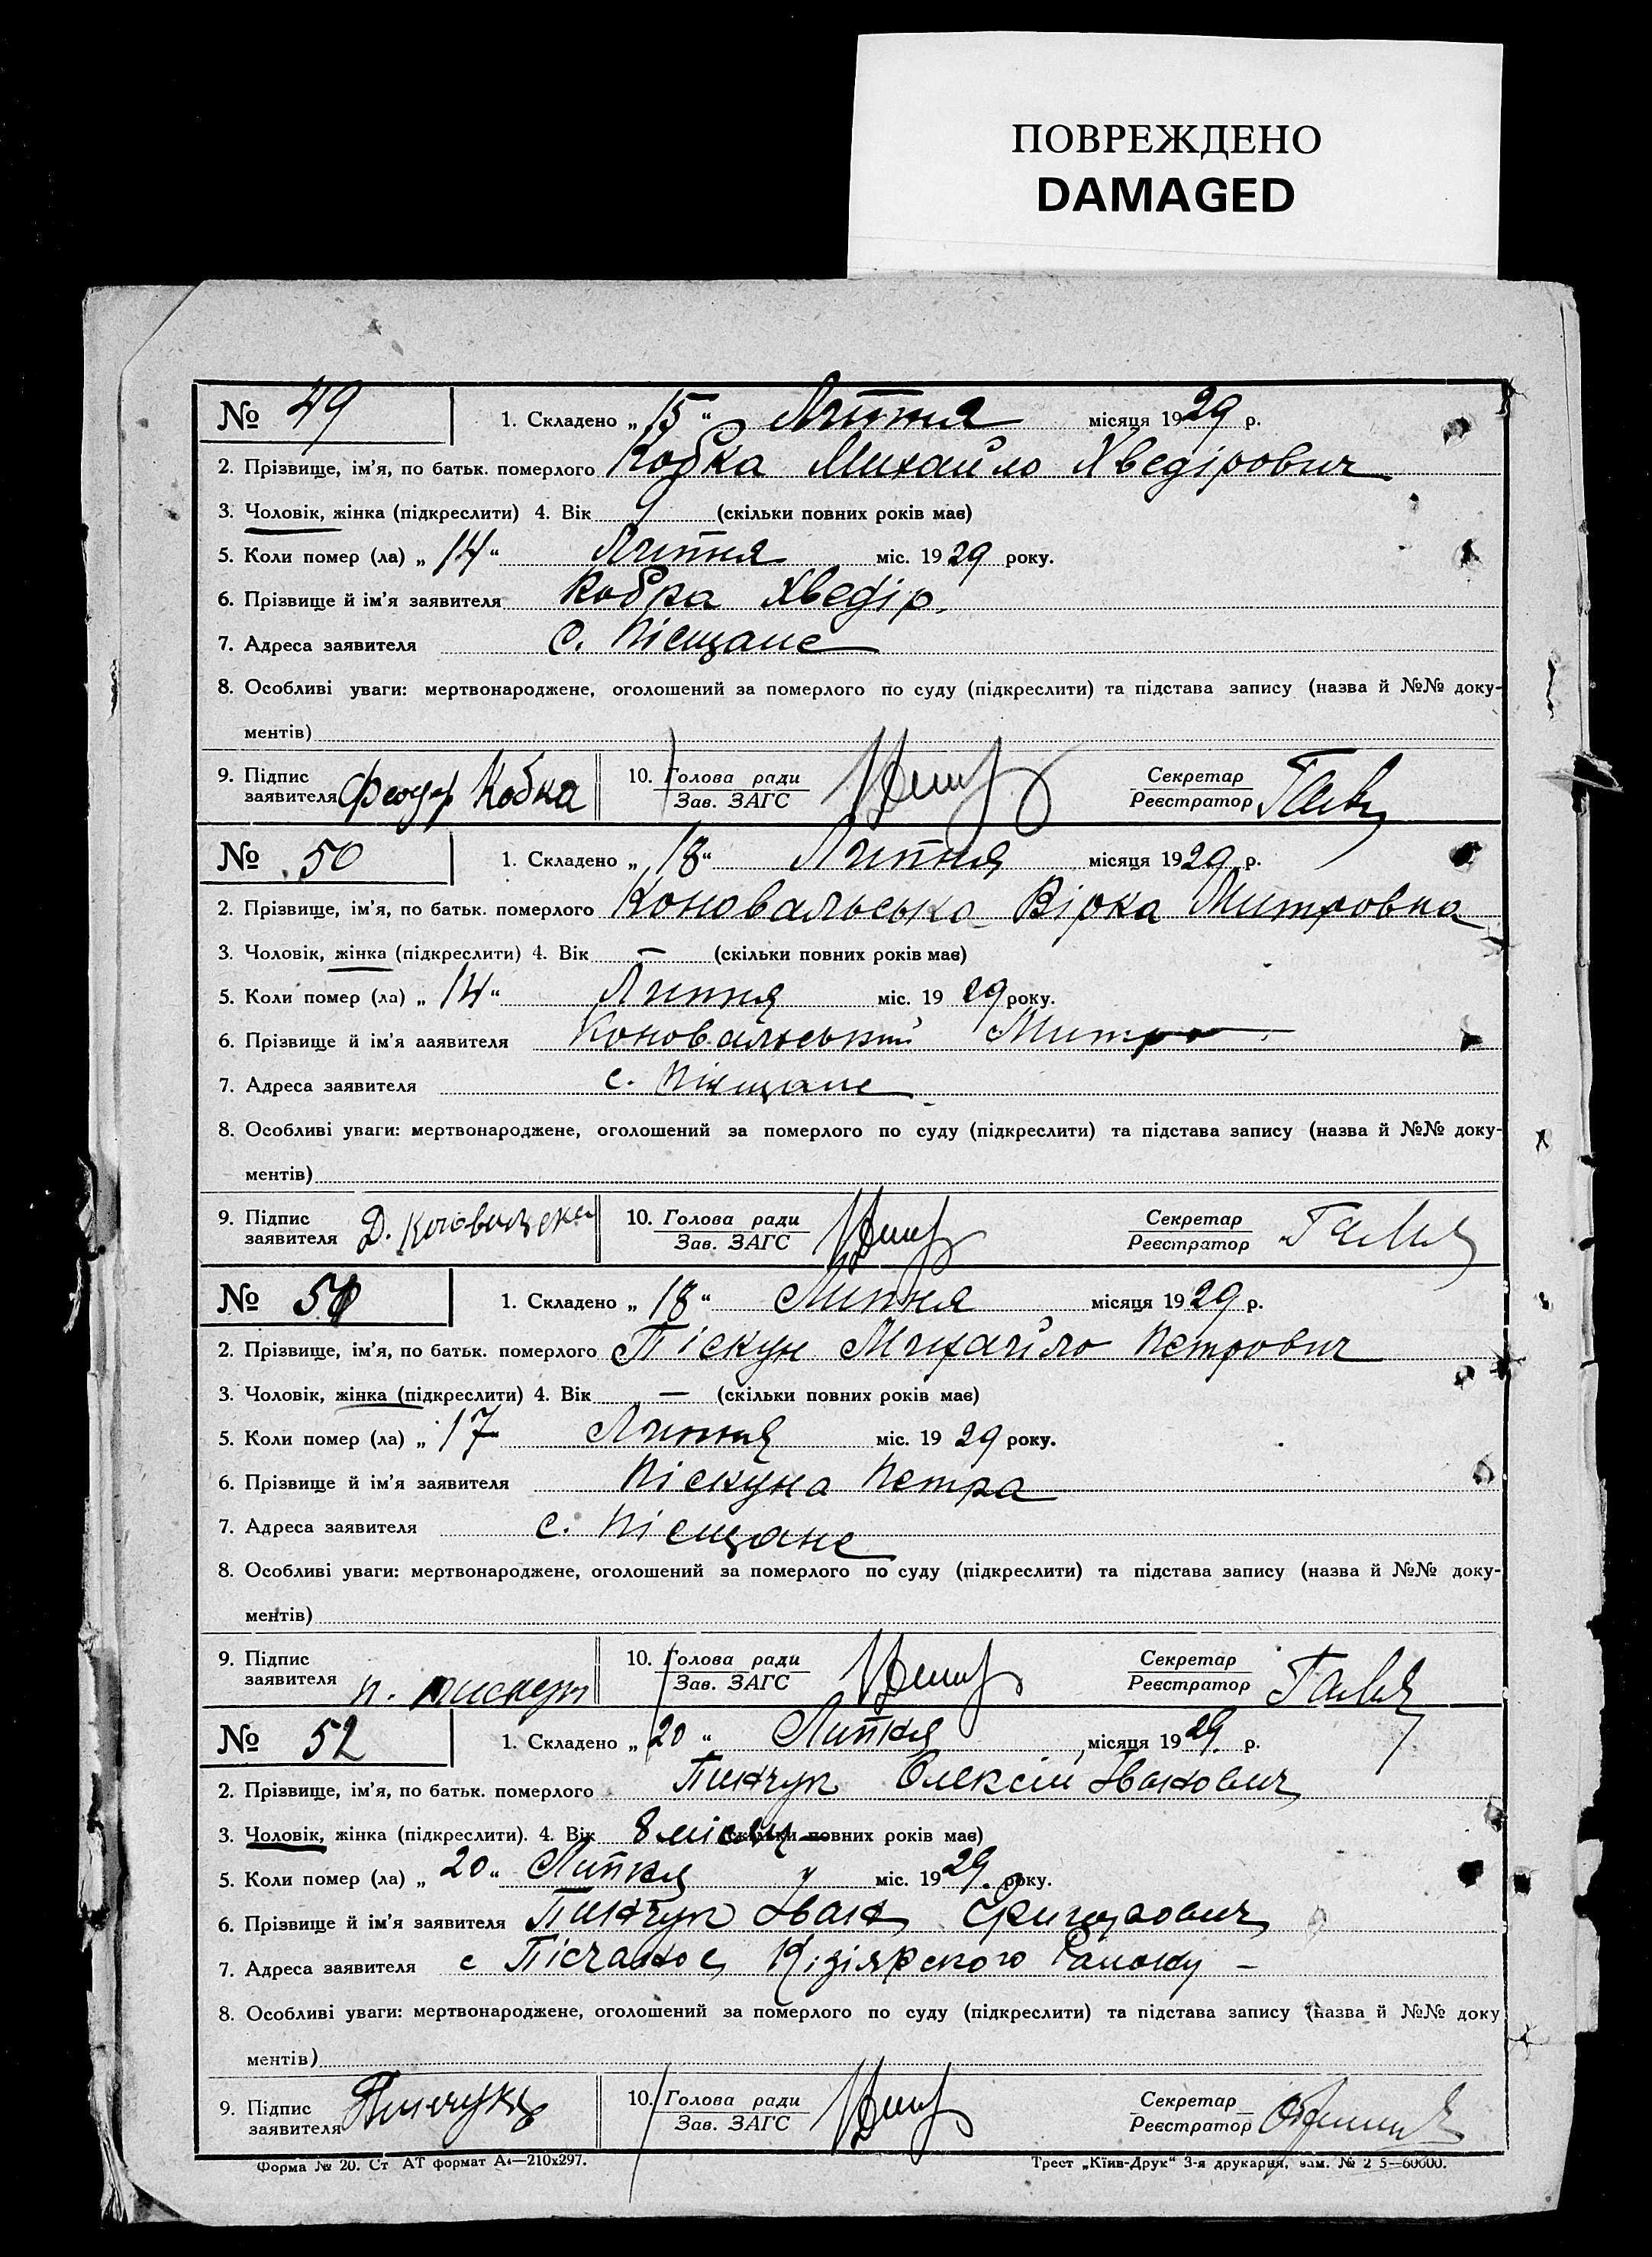 ПОВРЕЖДЕНО
DAMAGED
№ 49 1. Складено „15“ Липня місяця 1929 р.
2. Прізвище, ім’я, по батьк. померлого Кобка Михайло Хведірович
3. Чоловік, жінка (підкреслити) 4. Вік 9 (скільки повних років має)
5. Коли помер (ла) „14“ Липня міс. 1929 року.
6. Прізвище й ім’я заявителя Кобка Хведір.
7. Адреса заявителя с. Піщане
8. Особливі уваги: мертвонароджене, оголошений за померлого по суду (підкреслити) та підстава запису (назва й №№ доку-
ментів)
9. Підпис заявителя Феодор Кобка 10. Голова ради Зав. ЗАГС Секретар Реєстратор
№ 50 1. Складено „18“ Липня місяця 1929 р.
2. Прізвище, ім’я, по батьк. померлого Коновальська Вірка Митровна
3. Чоловік, жінка (підкреслити) 4. Вік — (скільки повних років має)
5. Коли помер (ла) „14“ Липня міс. 1929 року.
6. Прізвище й ім’я ааявителя Коновальський Митро
7. Адреса заявителя с. Піщане
8. Особливі уваги: мертвонароджене, оголошений за померлого по суду (підкреслити) та підстава запису (назва й №№ доку-
ментів)
9. Підпис заявителя Д. 10. Голова ради Зав. ЗАГС Секретар Реєстратор
№ 51 1. Складено „18“ Липня місяця 1929 р.
2. Прізвище, ім’я, по батьк. померлого Піскун Михайло Петрович
3. Чоловік, жінка (підкреслити) 4. Вік — (скільки повних років має)
5. Коли помер (ла) „17 Липня міс. 1929 року.
6. Прізвище й ім’я заявителя Піскуна Петра
7. Адреса заявителя с. Піещане
8. Особливі уваги: мертвонароджене, оголошений за померлого по суду (підкреслити) та підстава запису (назва й №№ доку-
ментів)
9. Підпис заявителя п. 10. Голова ради Зав. ЗАГС Секретар Реєстратор
№ 52 1. Складено „20“ Липня місяця 1929. р.
2. Прізвище, ім’я, по батьк. померлого Пинчук Олексій Іванович
3. Чоловік, жінка (підкреслити). 4. Вік 8 місяц (скільки повних років має)
5. Коли помер (ла) „20“ Липня міс. 1929. року.
6. Прізвище й ім’я заявителя Пинчук Іван Григорович
7. Адреса заявителя с Пісчаное Кізіярского Району –
8. Особливі уваги: мертвонароджене, оголошений за померлого по суду (підкреслити) та підстава запису (назва й №№ доку
ментів)
9. Підпис заявителя 10. Голова ради Зав. ЗАГС Секретар Реєстратор
Форма № 20. Ст АТ формат А4—210x297. Трест „Київ-Друк“ 3-я друкарня, зам. № 2 5—60600.